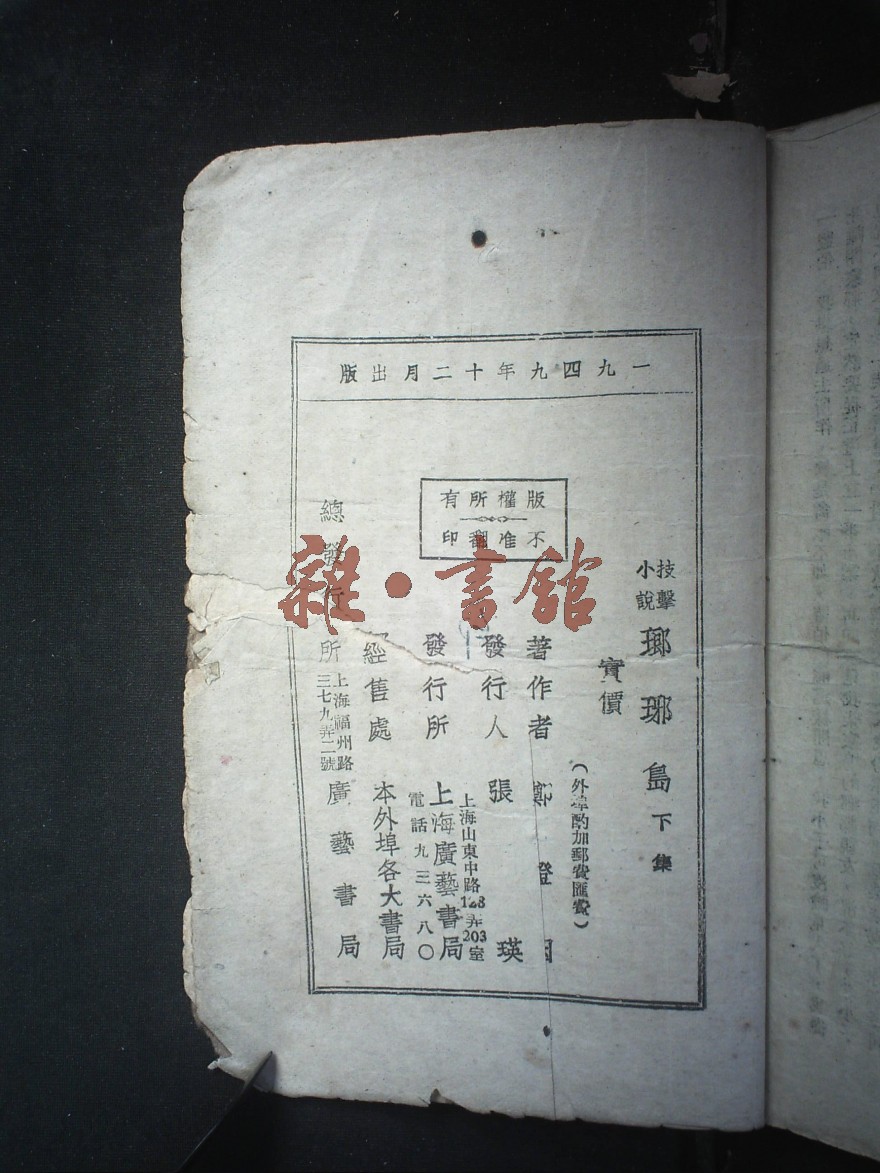 一九四九年十二月出版
版權所有
不准翻印
技擊小說 瑯琊島 下集
實價
(外埠酌加郵費匯費)
著作者 鄭證因
發行人 張瑛
發行所 上海山東中路128弄203室
上海廣藝書局
電話九三六八〇
經售處 本外埠各大書局
總發行所 上海福州路三七九弄二號 廣藝書局
雜·書館